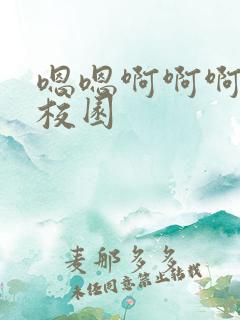 嗯嗯啊啊啊
校园
麦那多多
未经同意禁止转载